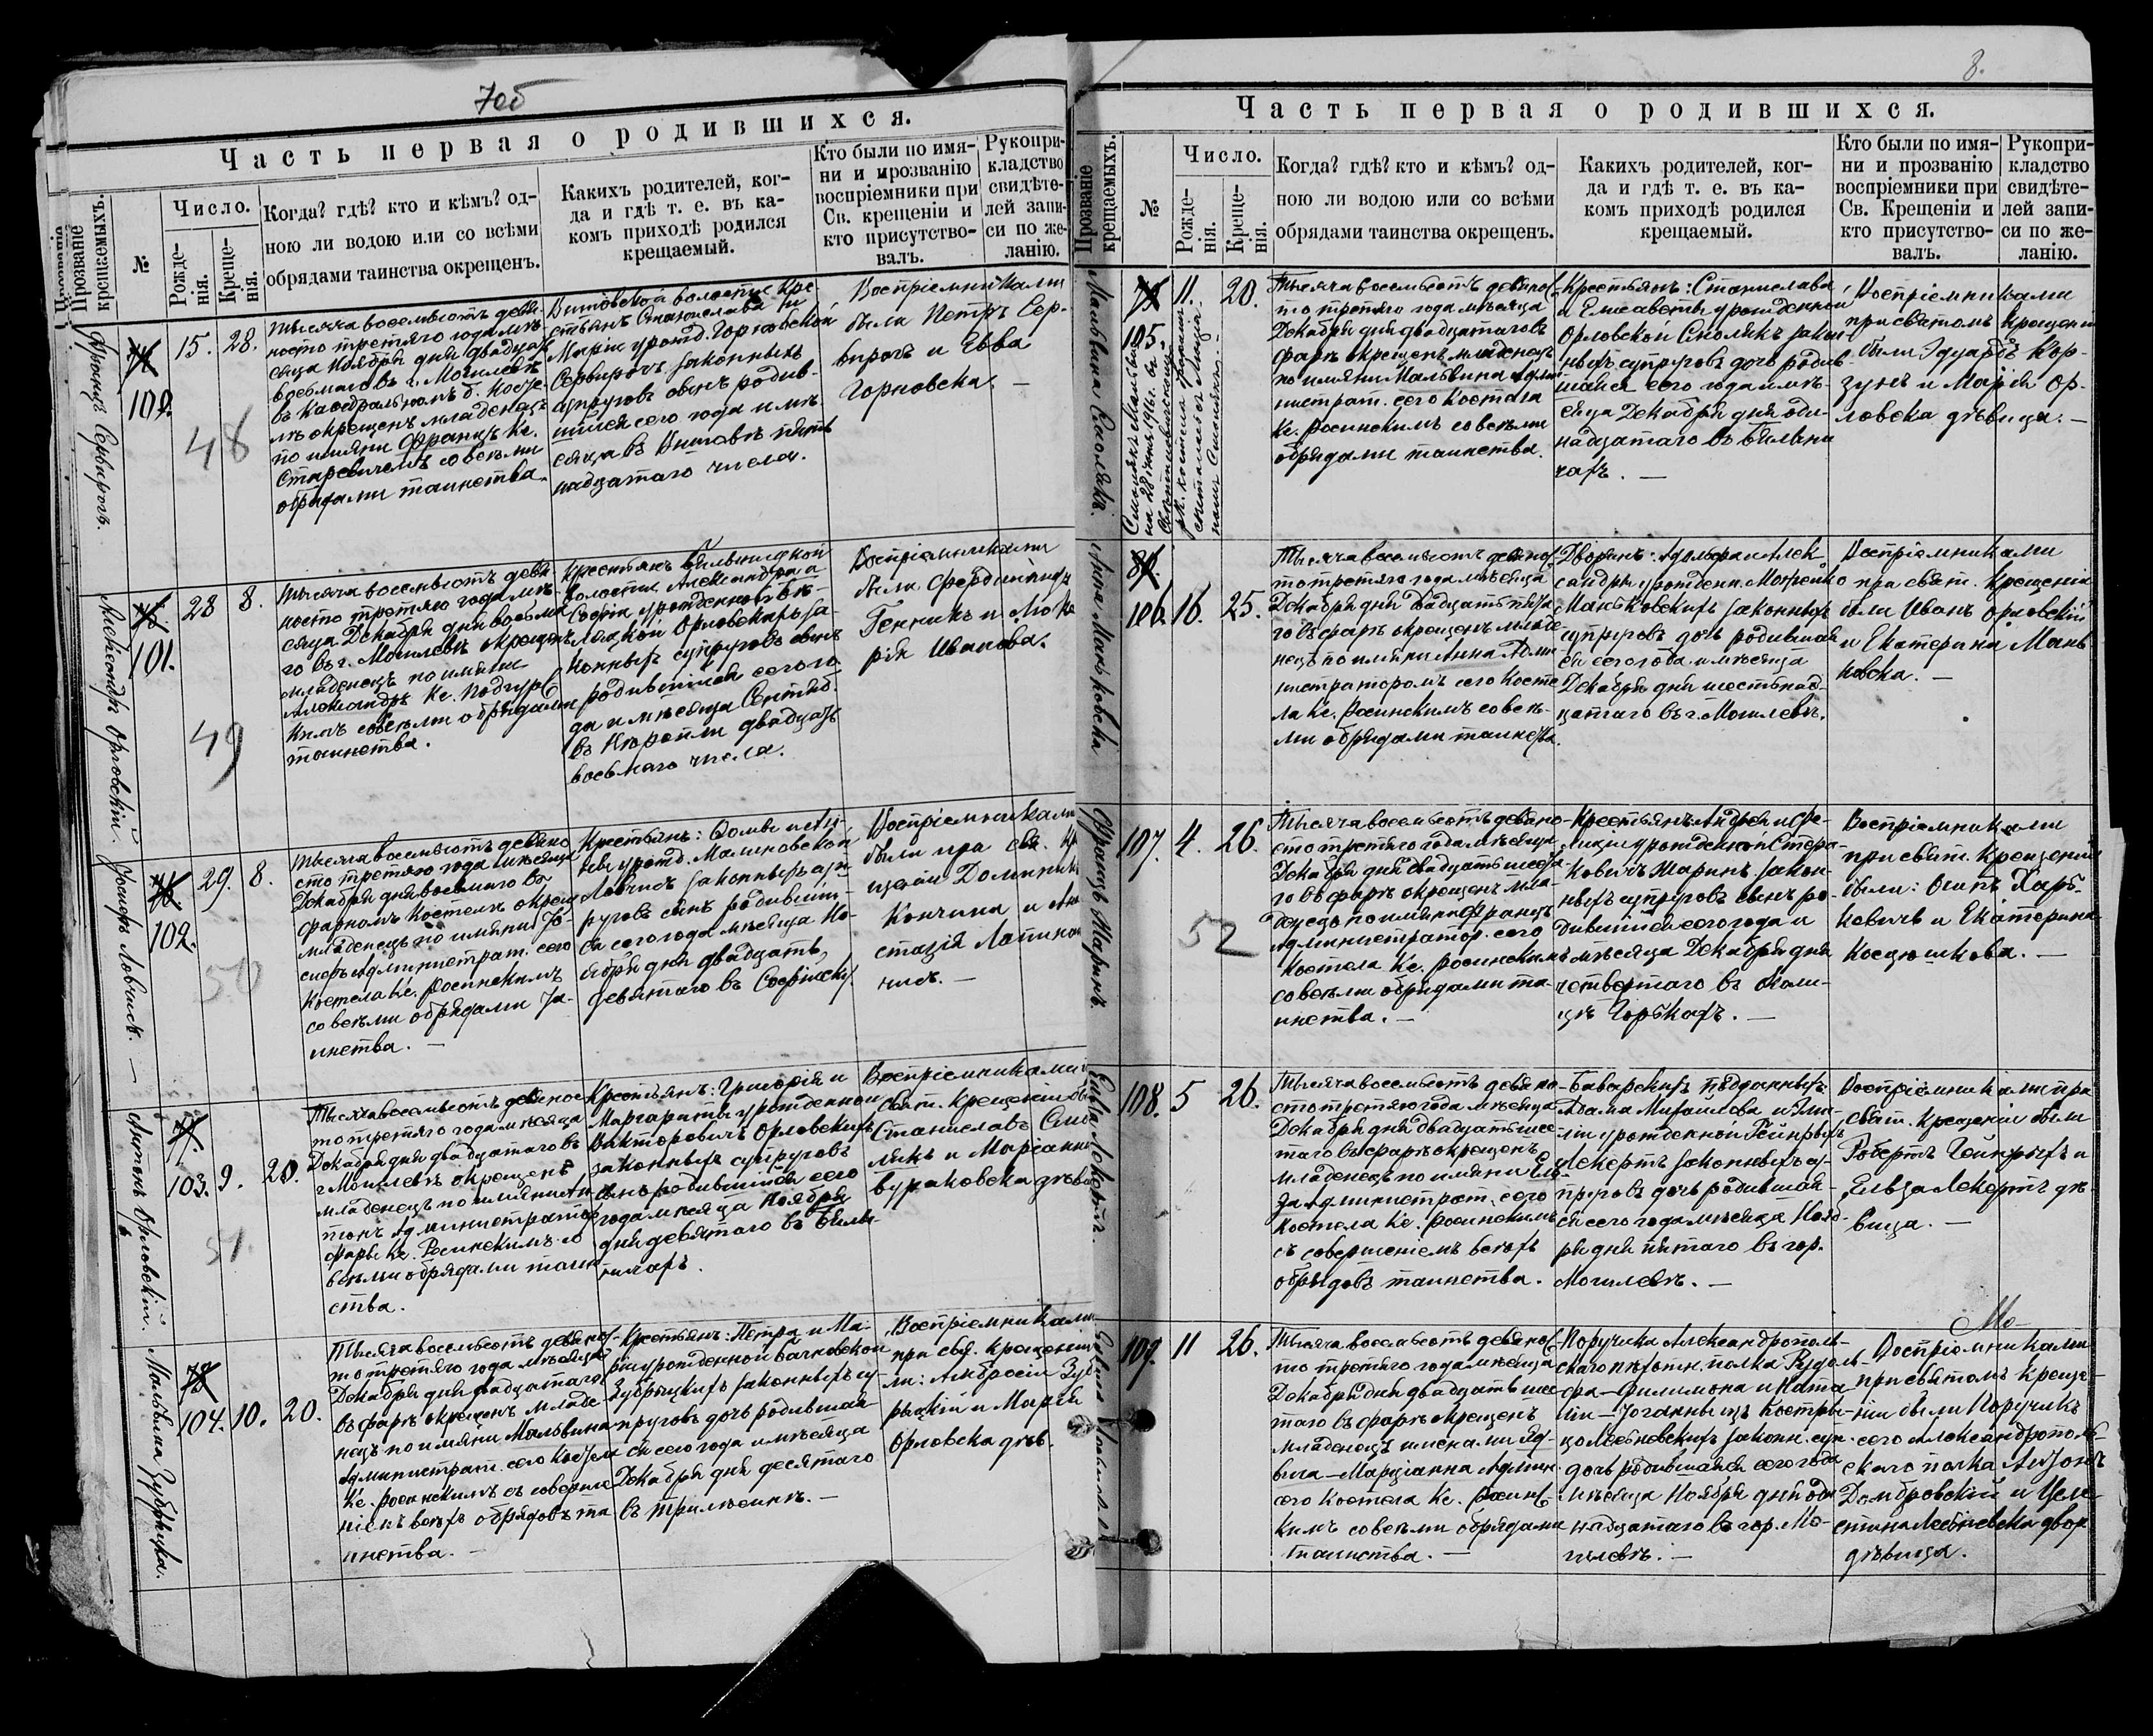 7об
Часть первая о родившихся.
Прозваніе крещаемыхъ.
№
Число.
Рожде-
нія.
Креще-
нія.
Когда? гдѣ? кто и кѣмъ? од-
ною ли водою или со всѣми
обрядами таинства окрещенъ.
Какихъ родителей, ког-
да и гдѣ т. е. въ ка-
комъ приходѣ родился
крещаемый.
Кто были по имя-
ни и прозванію
воспріемники при
Св. крещеніи и
кто присутство-
валъ.
Рукопри-
кладство
свидѣте-
лей запи-
си по же-
ланію.
Францъ Сервирогъ.
100.
48
15.
28.
Тысяча восемьсотъ девя-
носто третяго года мѣ-
сяца Ноября дня двадцать
восьмаго въ г. Могилевѣ
въ Каѳедральномъ б. Косте-
лѣ окрещенъ младенецъ
по имяни Францъ Кс.
Старевичемъ со всѣми
обрядами таинства.
Витовской волости кре-
стьянъ Станислава и
Маріи урожд. Горновской
Сервирогъ законныхъ
супруговъ сынъ родив-
шійся сего года и мѣ-
сяца въ Витовѣ пят-
надцатаго числа.
Воспріемниками
были Петръ Сер-
вирогъ и Евва
Горновска. —
Александръ Орловскій.
101.
49
28
8.
Тысяча восемьсотъ девя-
носто третяго года мѣ-
сяца Декабря дня восьма-
го въ г. Могилевѣ окрещенъ
младенецъ по имяни
Александръ Кс. Подгурс-
кимъ со всѣми обрядами
таинства.
Крестьянъ Вильницкой
волости Александра и
Софіи урожденной Бѣ-
ляцкой Орловскихъ за-
конныхъ супруговъ сынъ
родившійся сего го-
да и мѣсяца Сентяб.
въ двадцать
восьмаго числа.
Воспріемниками
были Фердинандъ
Генникъ и Ма-
рія Иванова.
Іосифъ Ловчикъ. —
102.
50
29.
8.
Тысяча восемьсотъ девяно-
сто третяго года мѣсяца
Декабря дня восьмаго въ
фарномъ костелѣ окрещ.
младенецъ по имяни Іо-
сифъ Администрат. сего
Костела Кс. Росинскимъ
со всѣми обрядами та-
инства. —
Крестьянъ: Ѳомы и
урожд. Малиновской
Ловчикъ законныхъ суп-
руговъ сынъ родившій-
ся сего года мѣсяца Но-
ября дня двадцать
девятаго въ
Воспріемниками
были при свя. Кр-
щеніи Доминикъ
Кончина и Ана-
стазія
Антонъ Орловскій.
103.
51
9.
20.
Тысяча восемьсотъ девянос-
то третяго года мѣсяца
Декабря дня двадцатаго въ
г. Могилевѣ окрещенъ
младенецъ по имяни Ан-
тонъ Администратор.
фары Кс. Росинскимъ со
всѣми обрядами таин-
ства.
Крестьянъ: Григорія и
Маргариты урожденной
Викторовичъ Орловскихъ
законныхъ супруговъ
сынъ родившійся сего
года мѣсяца Ноября
дня девятаго въ Бильи-
никахъ.
Воспріемниками
свят. Крещеніи бы
Станиславъ Смо-
лякъ и Маріанна
Бураковска дѣви
Мальвина Зубрицка.
104.
10.
20.
Тысяча восемьсотъ девянос-
то третяго года мѣсяца
Декабря дня двадцатаго
въ фарѣ окрещенъ младе-
нецъ по имяни Мальвина
Администрат. сего Костела
Кс. Росинскимъ съ соверше-
ніемъ всѣхъ обрядовъ та-
инства. —
Крестьянъ: Петра и Ма-
ріи урожденной Бачковской
Зубрицкихъ законныхъ су-
пруговъ дочь родившая-
ся сего года и мѣсяца
Декабря дня десятаго
въ Трилѣсинѣ. —
Воспріемниками
при свя. Крещеніи
ли: Амбросій Зуб-
рыцкій и Марія
Орловска дѣв.
8.
Часть первая о родившихся.
Прозваніе
крещаемыхъ.
№
Число.
Рожде-
нія.
Креще-
нія.
Когда? гдѣ? кто и кѣмъ? од-
ною ли водою или со всѣми
обрядами таинства окрещенъ.
Какихъ родителей, ког-
да и гдѣ т. е. въ ка-
комъ приходѣ родился
крещаемый.
Кто были по имя-
ни и прозванію
воспріемники при
Св. Крещеніи и
кто присутство-
валъ.
Рукопри-
кладство
свидѣте-
лей запи-
си по же-
ланію.
Мальвина Смолякъ.
105.
11.
20.
Тысяча восемьсотъ девянос-
то третяго года мѣсяца
Декабря дня двадцатаго въ
фарѣ окрещенъ младенецъ
по имяни Мальвина Адми-
нистрат. сего Костела
Кс. Росинскимъ со всѣми
обрядами таинства.
Крестьянъ: Станислава
и Елисаветы урожденной
Орловской Смолякъ закон-
ныхъ супруговъ дочь родив-
шаяся сего года и мѣ-
сяца Декабря дня оди-
надцатаго въ Бильини-
кахъ. —
Воспріемниками
при святомъ крещеніи
были Эдуардъ Кор-
зунъ и Марія Ор-
ловска дѣвица. —
Анна Маньковска
106.
16.
25.
Тысяча восемьсотъ девянос-
то третяго года мѣсяца
Декабря дня двадцать пята-
го въ фарѣ окрещенъ младе-
нецъ по имяни Анна Адми-
нистраторомъ сего Косте-
ла Кс. Росинскимъ со всѣ-
ми обрядами таинства.
Дворянъ: Адольфа и Алек-
сандры урожден. Можейко
Маньковскихъ законныхъ
супруговъ дочь родившая-
ся сего года и мѣсяца
Декабря дня шестьнад-
цатаго въ г. Могилевѣ.
Воспріемниками
при свят. Крещеніи
были Иванъ Орловскій
и Екатерина Мань-
ковска. —
Францъ Жаринъ.
107.
52
4.
26.
Тысяча восемьсотъ девяно-
сто третяго года мѣсяца
Декабря дня двадцать шеста-
го въ фарѣ окрещенъ мла-
денецъ по имяни Францъ
Администратор. сего
Костела Кс. Росинскимъ
со всѣми обрядами та-
инства. —
Крестьянъ: Андрея и Фе-
лиціи урожденной Стера-
ковичъ Жаринъ закон-
ныхъ супруговъ сынъ ро-
дившійся сего года и
мѣсяца Декабря дня
четвертаго въ околи-
цѣ Горбкахъ. —
Воспріемниками
при свят. Крещеніи
были: Осипъ Харб-
ковичъ и Екатерина
Косцюшкова. —
Ельза Лекертъ.
108.
5
26.
Тысяча восемьсотъ девяно-
сто третяго года мѣсяца
Декабря дня двадцать шес-
таго въ фарѣ окрещенъ
младенецъ по имяни Ель-
за Администрат. сего
Костела Кс. Росинскимъ
съ совершеніемъ всѣхъ
обрядовъ таинства.
Баварскихъ подданныхъ
Адама Михайлова и Эми-
ліи урожденной Гейнрыхъ
Лекертъ законныхъ су-
пруговъ дочь родившая-
ся сего года мѣсяца Нояб-
ря дня пятаго въ гор.
Могилевѣ. —
Воспріемниками при
свят. Крещеніи были
Робертъ Гейнрыхъ и
Ельза Лекертъ дѣ-
вица. —
109.
11
26.
Тысяча восемьсотъ девянос-
то третяго года мѣсяца
Декабря дня двадцать шес-
таго въ фарѣ окрещенъ
младенецъ именами Яд-
вига-Марціанна Админ.
сего Костела Кс. Росинс-
кимъ со всѣми обрядами
таинства. —
Поручика Александрополь-
скаго пѣхотн. полка Рудоль-
фа-Филимона и Ната-
ліи-Іоганны изъ
законн. суп.
дочь родившаяся сего года
мѣсяца Ноября дня оди-
надцатаго въ гор. Мо-
гилевѣ. —
Воспріемниками
при святомъ Креще-
ніи были Поручикъ
сего Александрополь-
скаго полка Антонъ
Домбровскій и Целе-
стина двор.
дѣвица.